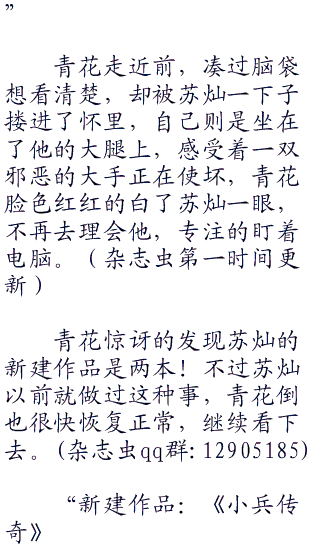 ”
青花走近前，凑过脑袋
想看清楚，却被苏灿一下子
搂进了怀里，自己则是坐在
了他的大腿上，感受着一双
邪恶的大手正在使坏，青花
脸色红红的白了苏灿一眼，
不再去理会他，专注的盯着
电脑。（杂志虫第一时间更
新）
青花惊讶的发现苏灿的
新建作品是两本！不过苏灿
以前就做过这种事，青花倒
也很快恢复正常，继续看下
去。(杂志虫qq群: 12905185)
“新建作品：《小兵传
奇》